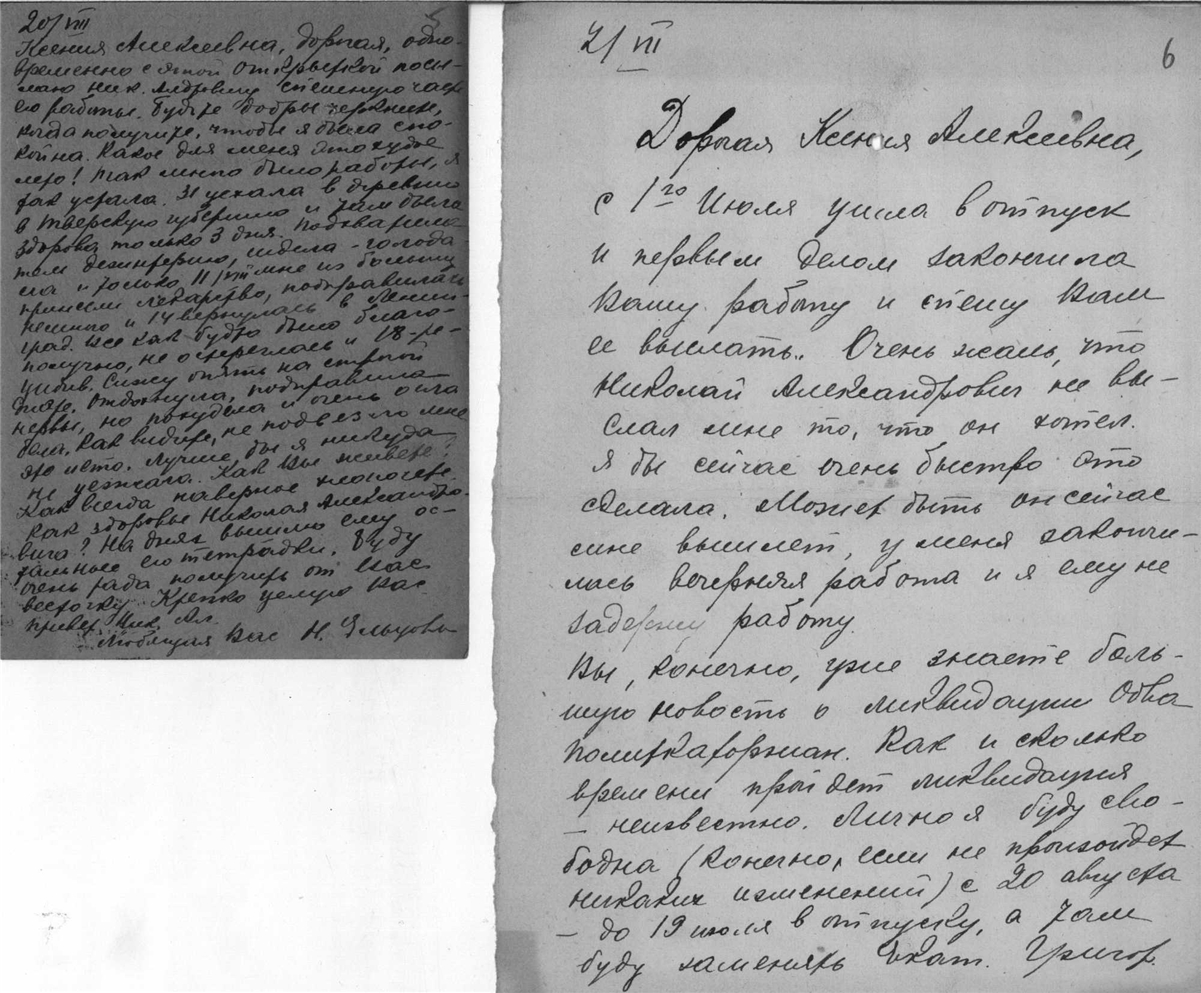 20/VIII
5
Ксения Алексеевна, дорогая, одно-
временно с этой открыткой посы-
лаю Ник. Алдровичу спешную часть
его работы. Будьте добры черкните,
когда получите, чтобы я была спо-
койна. Какое для меня это худое
лето! Так много было работы, я
так устала. 31 уехала в деревню
в Тверскую губернию и там была
здорова только 3 дня.
там дизентерию, сидела - голода-
ла и только 11/VIII мне из больницы
принесли лекарство, поправилась
немного и 14 вернулась в Ленин-
град. Все как будто было благо-
получно, не остереглась и 18-ре-
цидив. Сижу опять на строгой
диэте. Отдохнула, подправила
нервы, но похудела и очень осла-
бела. Как видите, не повезло мне
это лето. Лучше бы я никуда
не уезжала. Как Вы живете?
Как всегда наверное хлопочете.
Как здоровье Николая Александро-
вича? На днях вышлю ему ос-
тальные его тетрадки. Буду
очень рада получить от Вас
весточку. Крепко целую Вас
привет Ник. Ал.
Любящая Вас Н. Ельцова
2/VII
6
Дорогая Ксения Алексеевна,
с 1го Июля ушла в отпуск
и первым делом закончила
Вашу работу и спешу Вам
ее выслать. Очень жаль, что
Николай Александрович не вы-
слал мне то, что он хотел.
Я бы сейчас очень быстро это
сделала. Может быть он сейчас
мне вышлет, у меня закончи-
лась вечерняя работа и я ему не
задержу работу.
Вы, конечно, уже знаете боль-
шую новость о ликвидации Об-ва
Политкаторжан. Как и сколько
времени пройдет ликвидация
- неизвестно. Лично я буду сво-
бодна (конечно, если не произойдет
никаких изменений) с 20 августа
- до 19 июля в отпуску, а там
буду заменять Екат. Григор.